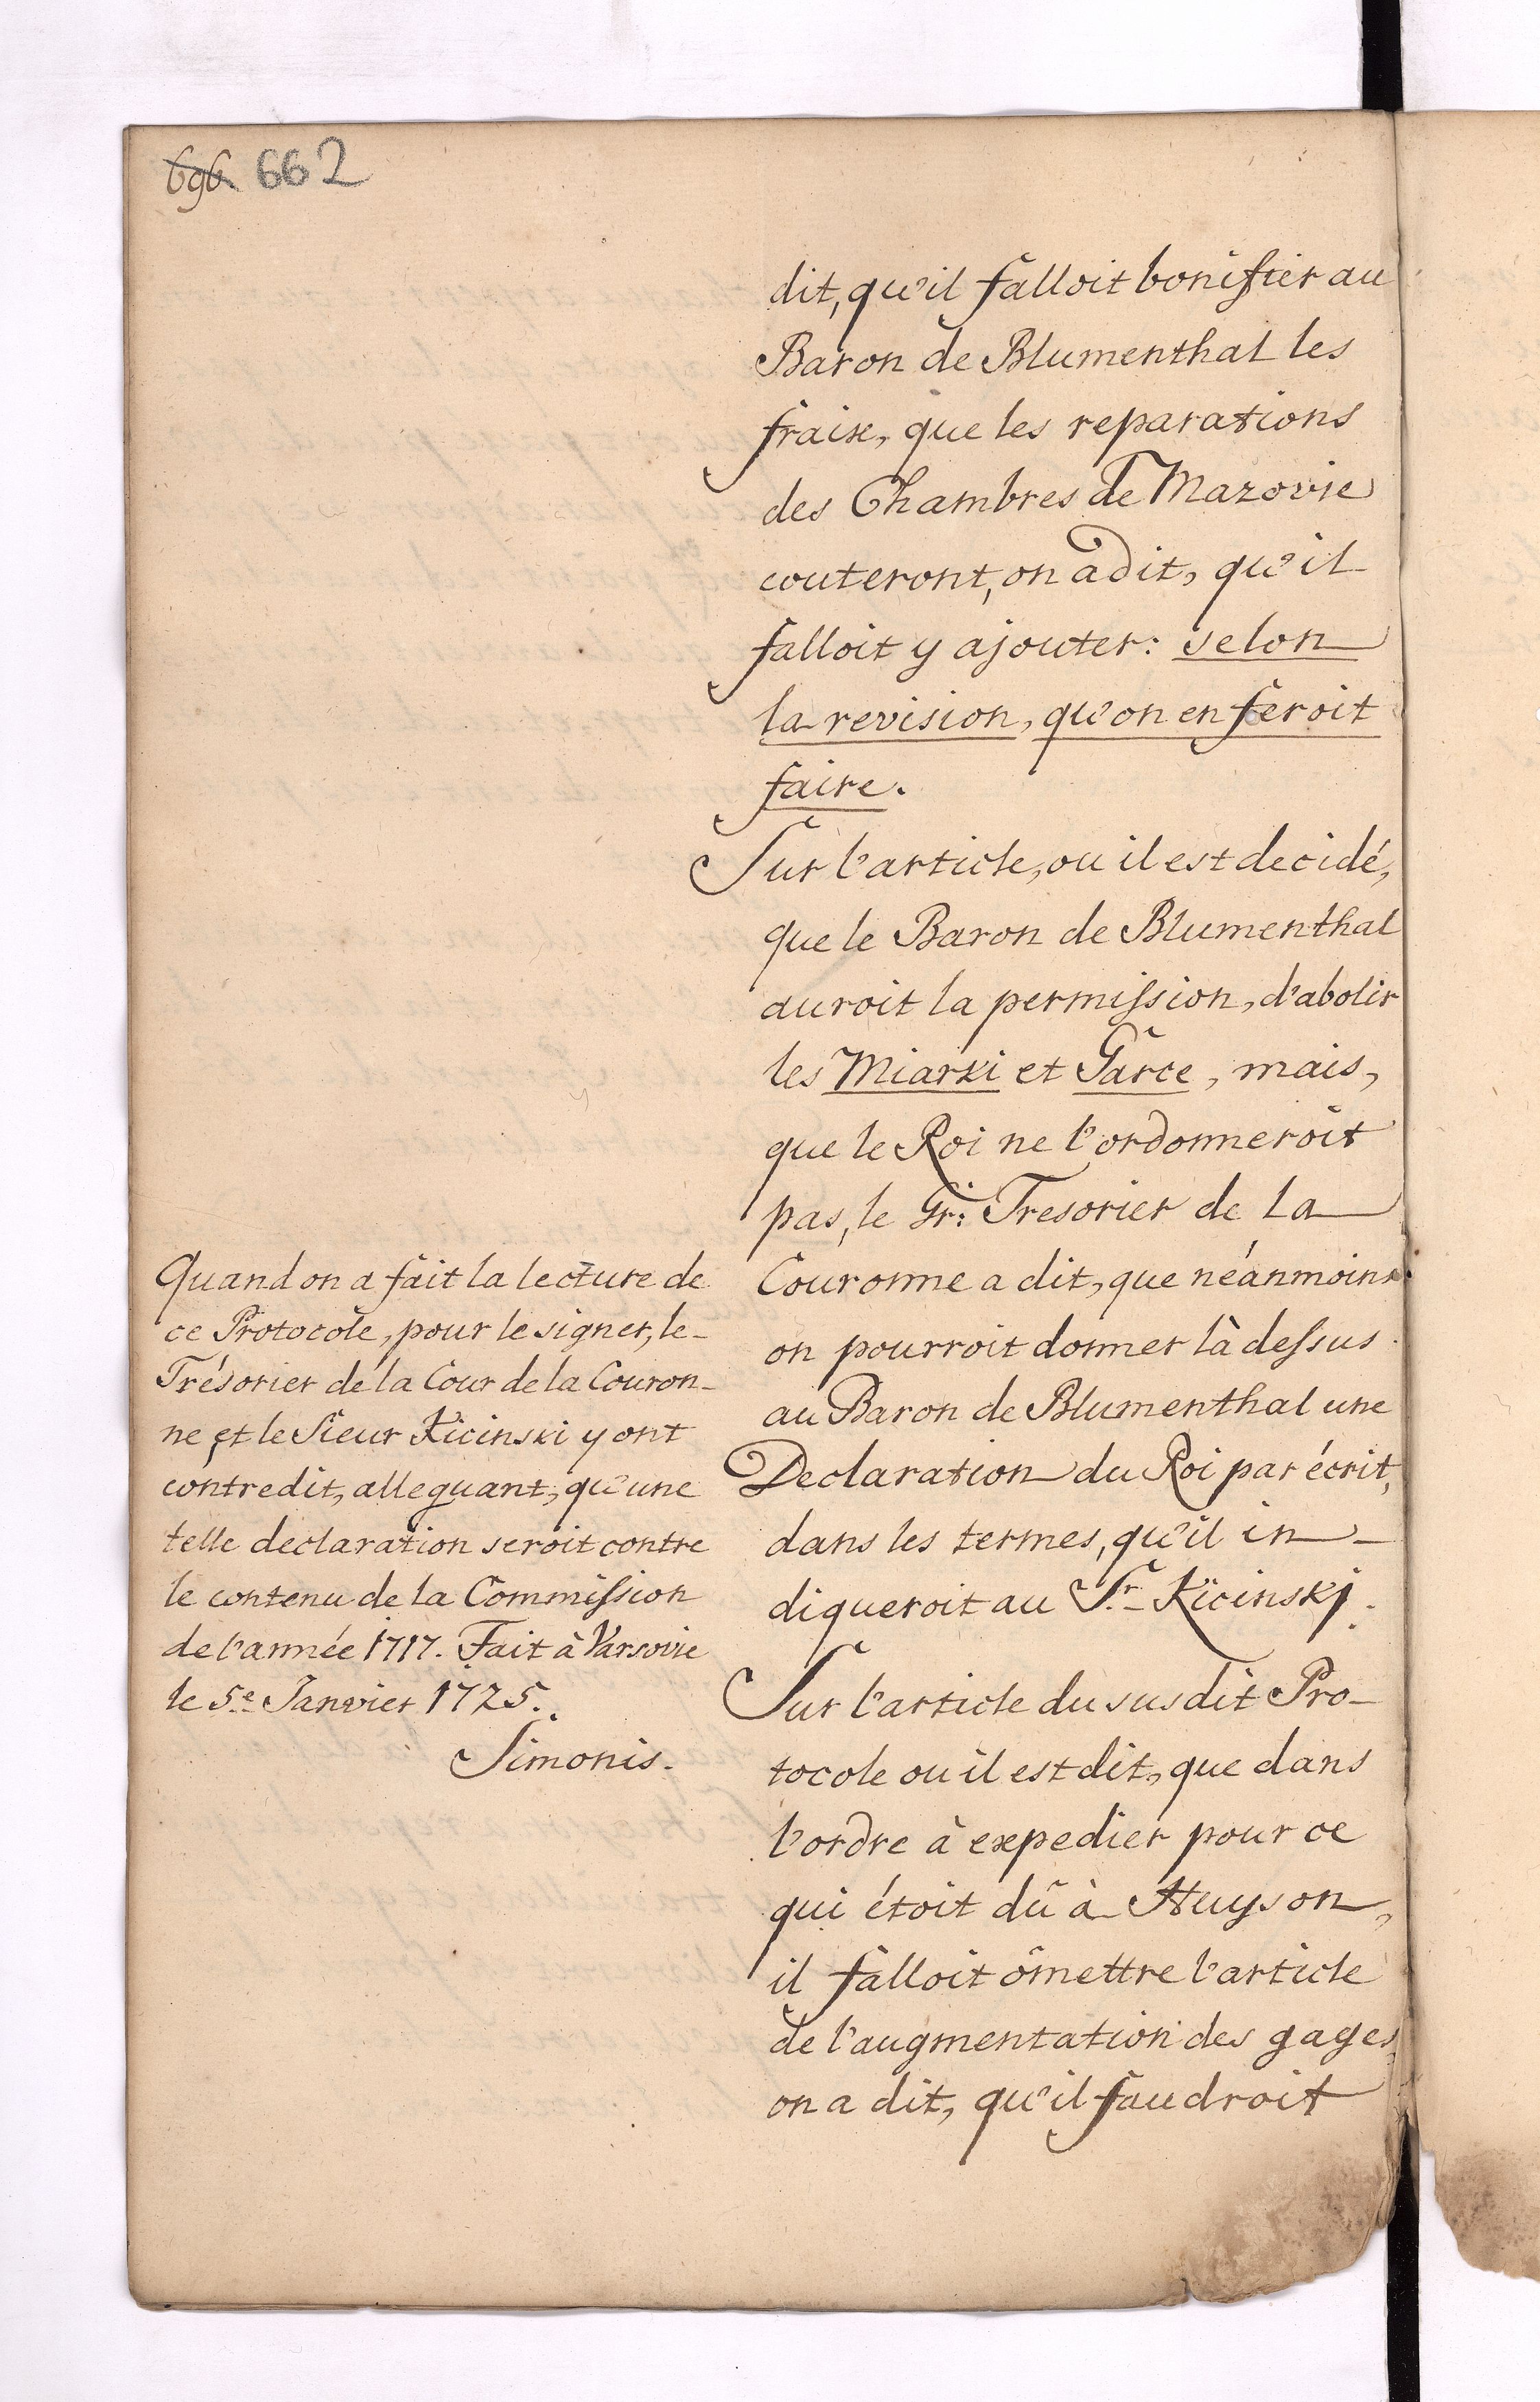 696. 662
dit, qu'il falloit bonifier au
Baron de Blumenthal les
fraix, que les reparations
des Chambres de Mazovie
couteront, on a dit, qu'il
falloit y ajouter: selon
la revision, qu'on en feroit
faire.
Sur l'article, ou il est decidé,
que le Baron de Blumenthal
auroit la permission, d'abolir
les Miarki et Garce, mais,
que le Roi ne l'ordonneroit
pas, le Gr: Tresorier de la
Couronne a dit, que néanmoins
on pourroit donner là dessus
au Baron de Blumenthal une
Declaration du Roi par écrit,
dans les termes, qu'il in-
diqueroit au Sr. Kicinski.
Sur l'article du susdit Pro-
tocole ou il est dit, que dans
l'ordre à expedier pour ce
qui étoit dû à Huyson,
il falloit ômettre l'article
de l'augmentation des gages,
on a dit, qu'il faudroit
Quand on a fait la lecture de
ce Protocole, pour le signer, le
Trésorier de la Cour de la Couron-
ne, et le Sieur Kicinski y ont
contredit, alleguant, qu'une
telle declaration seroit contre
le contenu de la Commission
de l'année 1717. Fait à Varsovie
le 5e Janvier 1725.
Simonis.